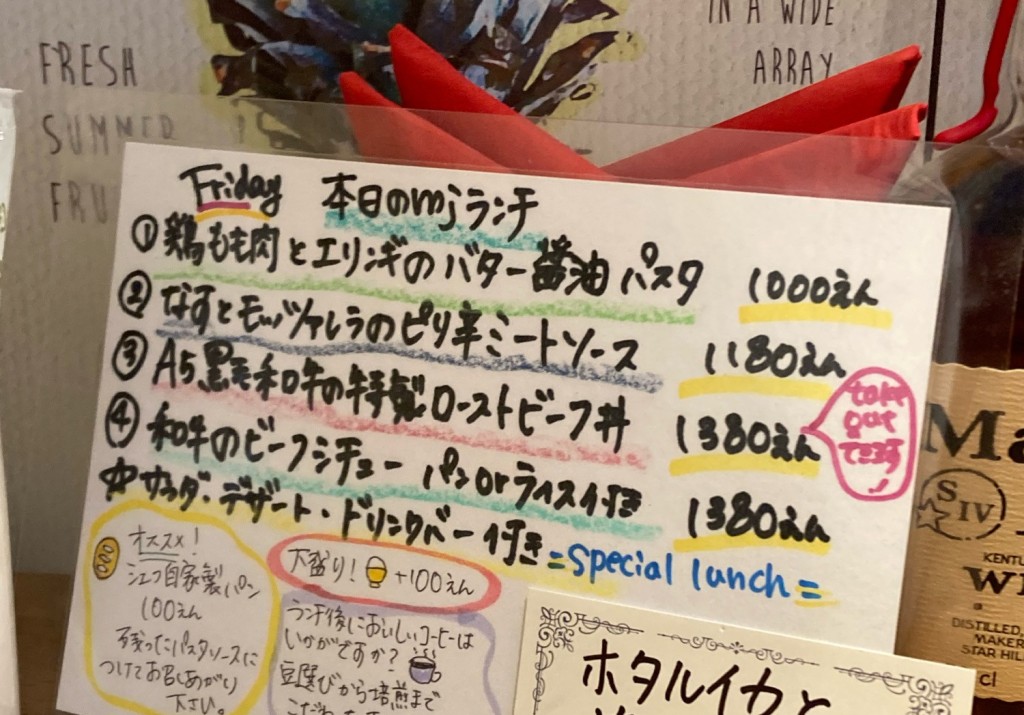 FRESH
SUMMER
FRU
IN A WIDE
ARRAY
Friday 本日のmjランチ
① 鶏もも肉とエリンギのバター醤油パスタ 1000えん
② なすとモッツァレラのピリ辛ミートソース 1180えん
③ A5黒毛和牛の特製ローストビーフ丼 1380えん
take
out
できます
!
④ 和牛のビーフシチュー パンorライス付き 1380えん
☆サラダ・デザート・ドリンクバー付き =special lunch=
オススメ!
シェフ自家製パン
100えん
残ったパスタソースに
つけてお召しあがり
下さい。
大盛り! +100えん
ランチ後においしいコーヒーは
いかがですか?
豆選びから焙煎まで
ホタルイカと
Ma
S IV
KENTU
W
DISTILLED,
MAKER
STAR HIL
cl